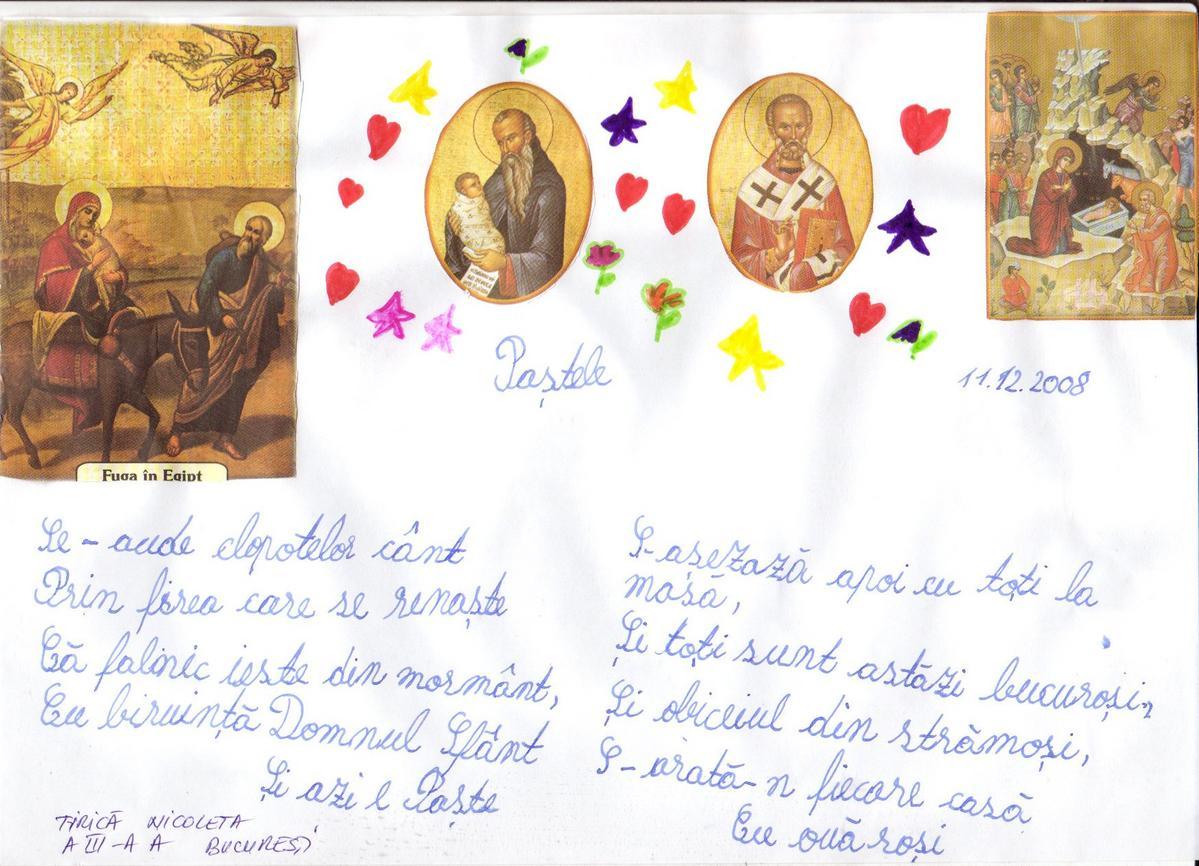 Paștele
11.12.2008
Fuga în Egipt
Se-aude clopotelor cânt
Prin firea care se renaște
Că falinic ieste din mormânt,
Cu biruință Domnul Sfânt
Și azi e Paște
S-așezază apoi cu toți la
masă,
Și toți sunt astăzi bucuroși,
Și obiceiul din strămoși,
S-arată-n fiecare casă
Cu ouă roși
TIRICĂ NICOLETA
A III-A A BUCUREȘTI